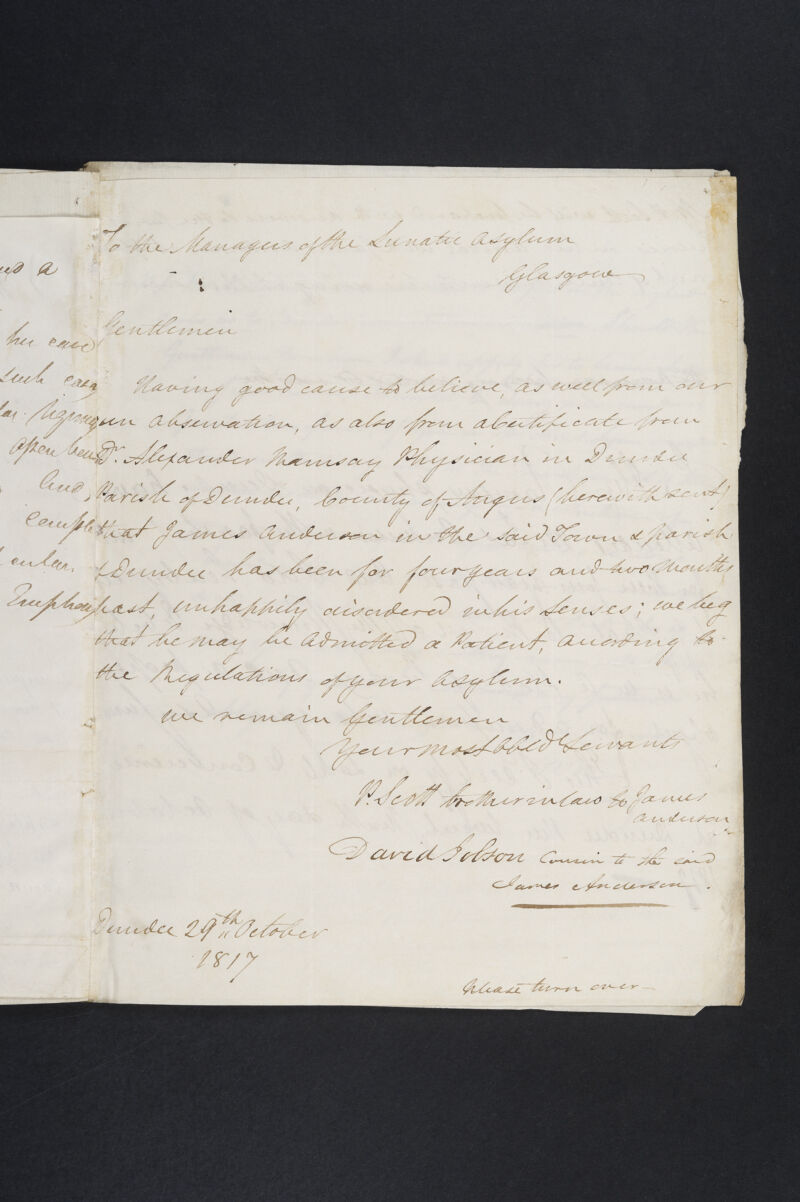 To the Managers of the Lunatic Asylum
Glasgow
Gentlemen
Having good cause to believe, as well from our
own observation, as also from a Certificate from
Dr. Alexander Ramsay Physician in Dundee
Parish of Dundee, County of Angus (herewith sent)
that James Anderson in the said Town & parish
of Dundee has been for four years and two Months
past, unhappily disordered in his Senses; we beg
that he may be Admitted a Patient, according to
the Regulations of your Asylum.
We remain Gentlemen
Your most Obed Servants
P. Scott brother in law to James
Anderson
David Jobson Cousin to the said
James Anderson.
Dundee 29th October
1817
Please turn over
a
her case
such
open
And